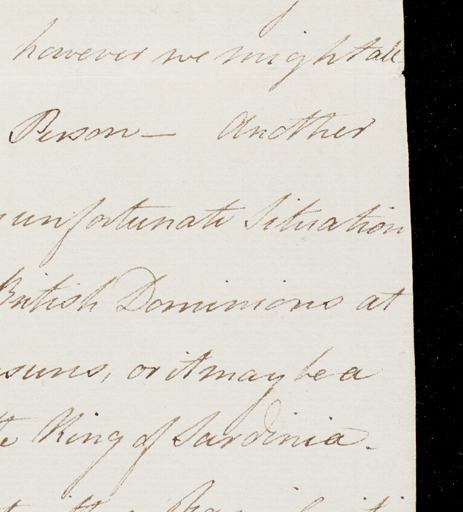 however we might all
Person — Another
unfortunate Situation
British Dominions at
or it may be a
King of Sardinia.